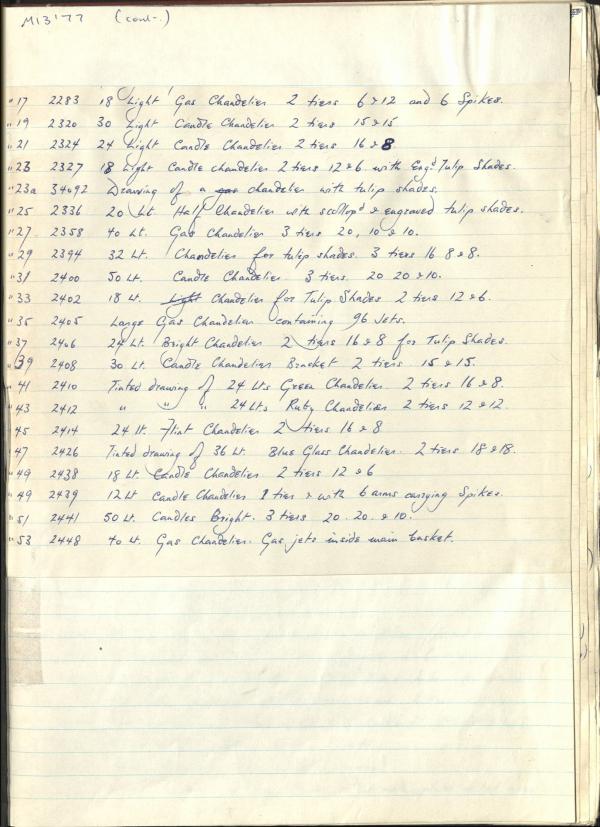 M13'77 (cont-.)
"17 2283 18 Light Gas Chandelier 2 tiers 6 & 12 and 6 Spikes.
"19 2320 30 Light Candle Chandelier 2 tiers 15 & 15
"21 2324 24 Light Candle Chandelier 2 tiers 16 & 8
"23 2327 18 Light Candle chandelier 2 tiers 12 & 6 with Engd Tulip Shades.
"23a 34092 Drawing of a gas chandelier with tulip shades.
"25 2336 20 Lt. Half Chandelier with scollopd & engraved tulip shades.
"27 2358 40 Lt. Gas Chandelier 3 tiers 20, 10 & 10.
"29 2394 32 Lt. Chandelier for tulip shades 3 tiers 16 8 & 8.
"31 2400 50 Lt. Candle Chandelier 3 tiers. 20 20 & 10.
"33 2402 18 Lt. Light Chandelier for Tulip Shades 2 tiers 12 & 6.
"35 2405 Large Gas Chandelier containing 96 Jets.
"37 2406 24 Lt. Bright Chandelier 2 tiers 16 & 8 for Tulip Shades.
"39 2408 30 Lt. Candle Chandelier Bracket 2 tiers 15 & 15.
"41 2410 Tinted drawing of 24 Lts Green Chandelier. 2 tiers 16 & 8.
"43 2412 " " " 24 Lts Ruby Chandelier 2 tiers 12 & 12.
"45 2414 24 lt. Flint Chandelier 2 tiers 16 & 8
"47 2426 Tinted drawing of 36 Lt. Blue Glass Chandelier. 2 tiers 18 & 18.
"49 2438 18 Lt Candle Chandelier 2 tiers 12 & 6
"49 2439 12 Lt Candle Chandelier 1 tier & with 6 arms carrying Spikes.
"51 2441 50 Lt. Candles Bright. 3 tiers 20. 20. & 10.
"53 2448 40 Lt. Gas Chandelier. Gas jets inside main basket.